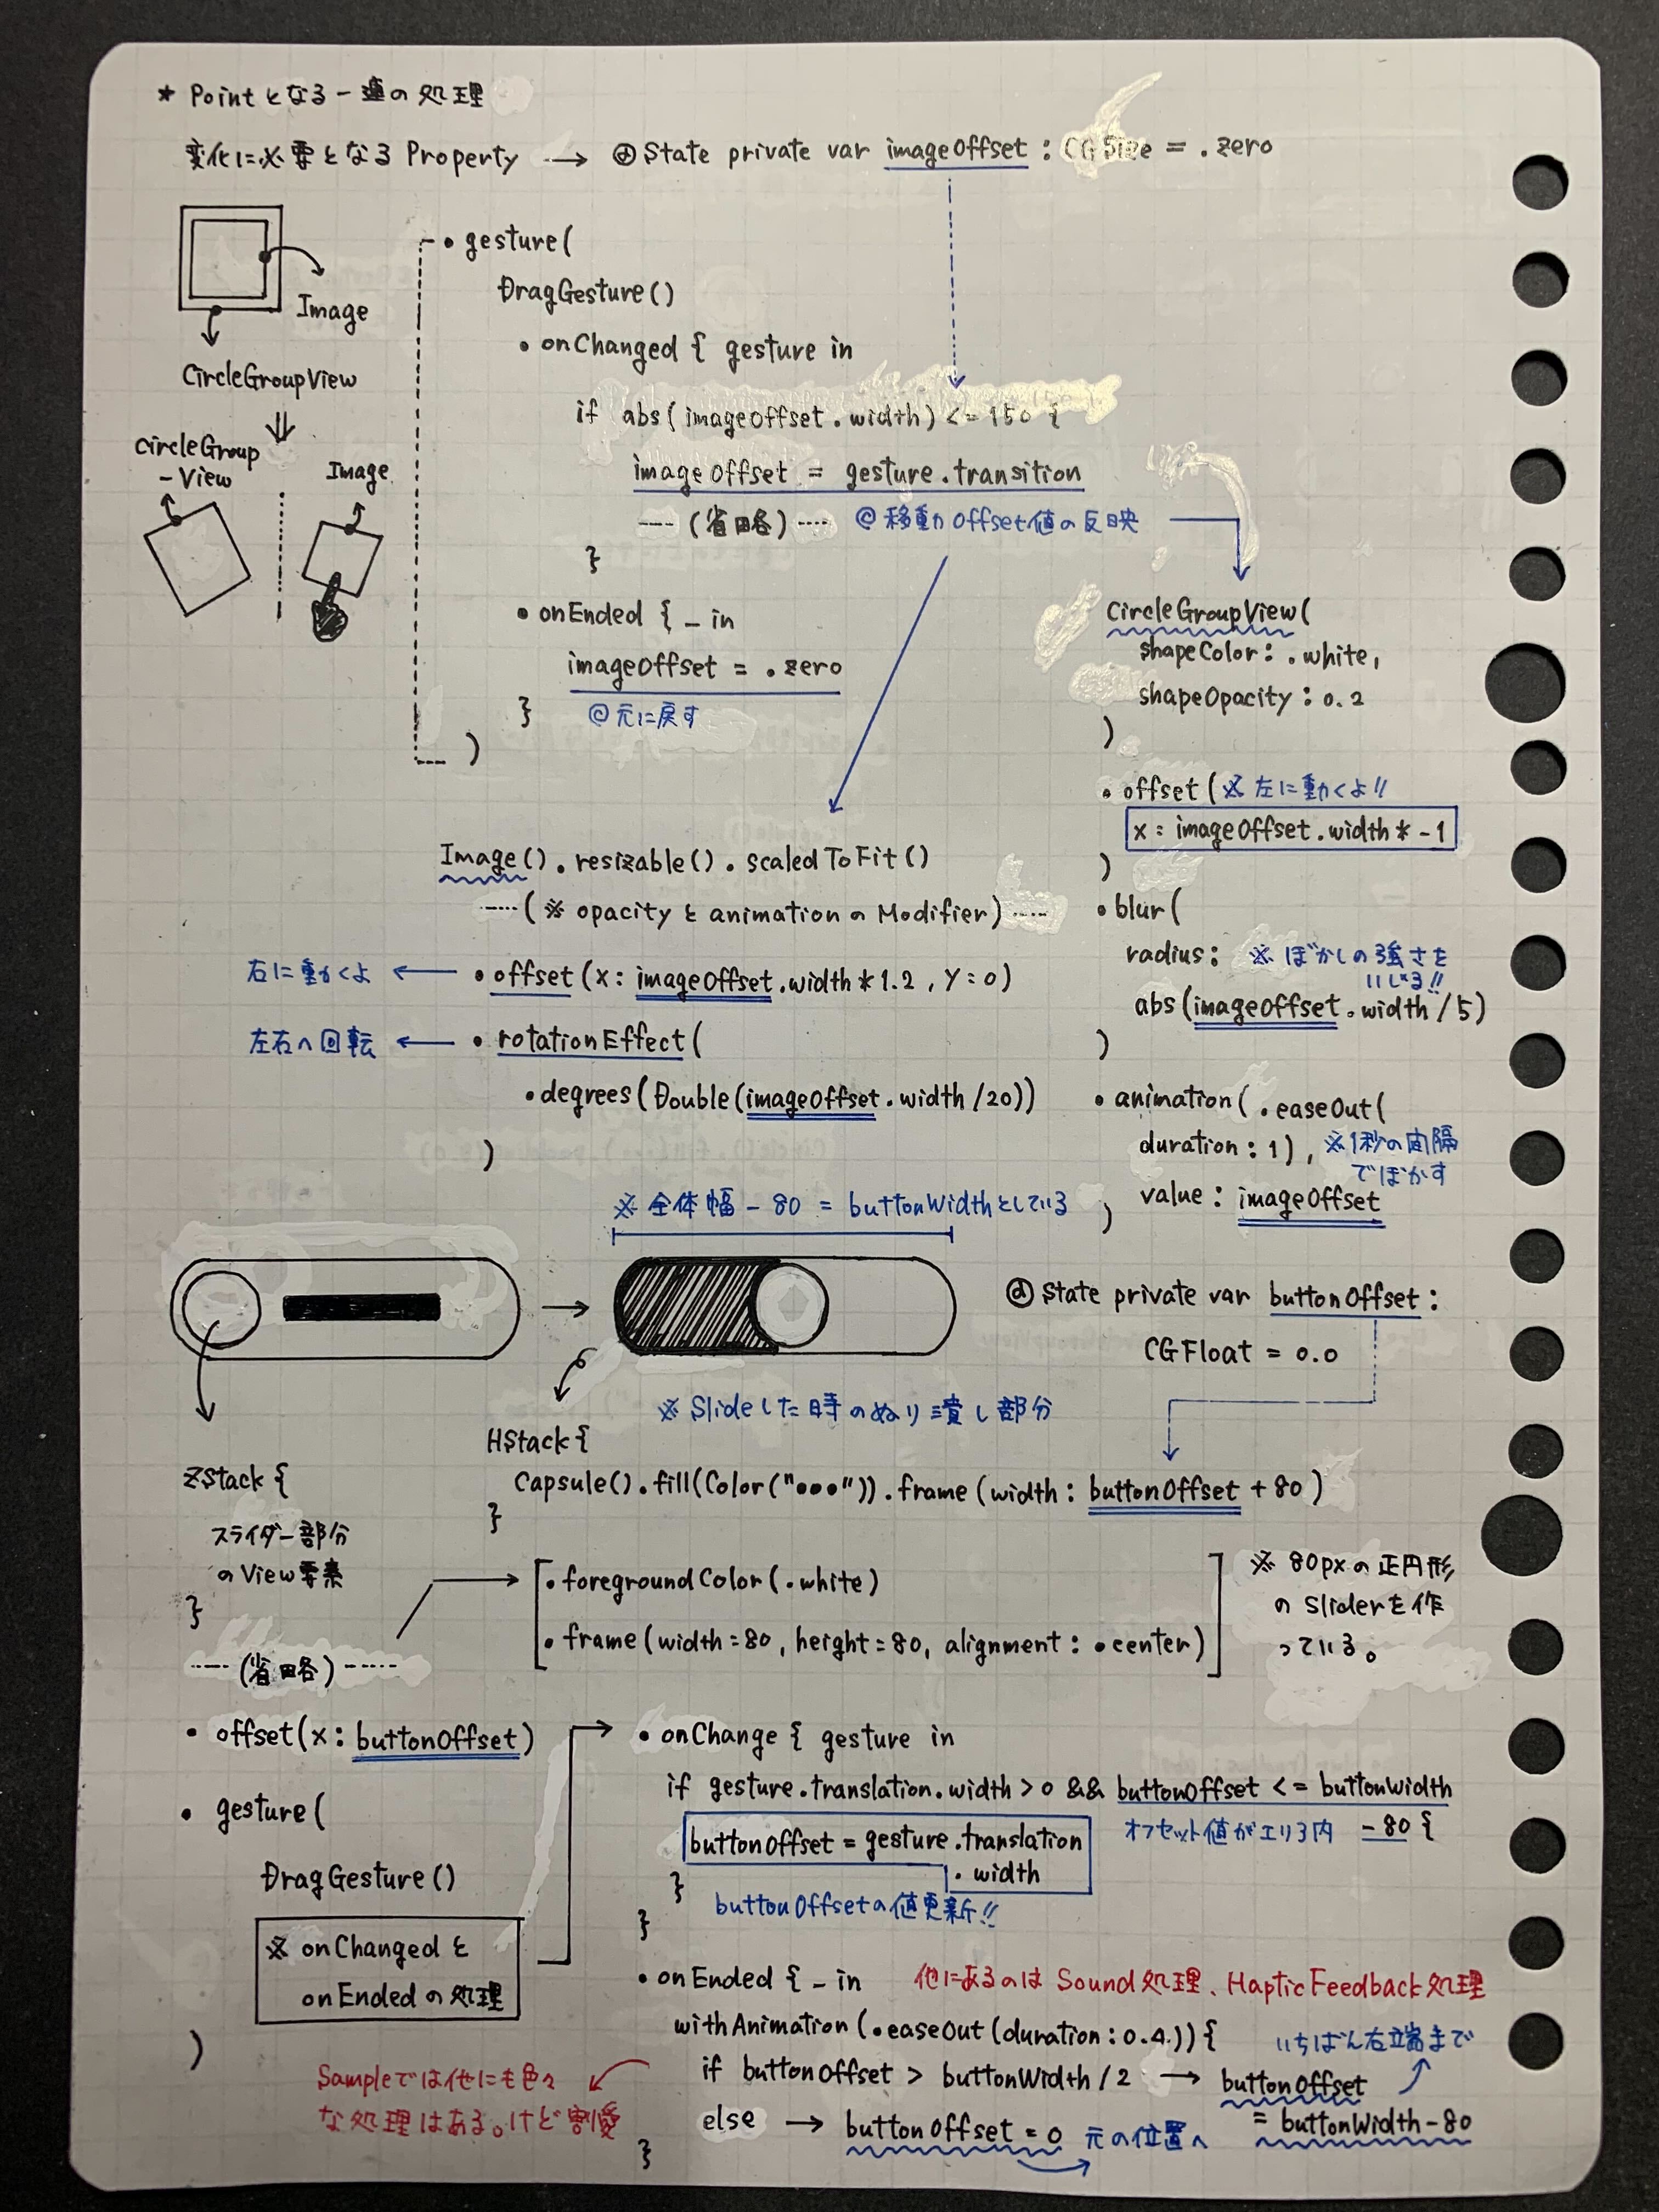 * Pointとなる一連の処理
変化に必要となる Property → @State private var imageOffset : CGSize = .zero
Image
CircleGroupView
CircleGroup
-View
Image
• gesture(
DragGesture()
• onChanged { gesture in
if abs(imageOffset.width) <= 150 {
imageOffset = gesture.transition
---- (省略) ----
@移動Offset値の反映
}
• onEnded { _ in
imageOffset = .zero
}
@元に戻す
)
CircleGroupView(
shapeColor: .white,
shapeOpacity: 0.2
)
• offset( ※左に動くよ!!
x: imageOffset.width * -1
)
• blur(
radius: ※ ぼかしの強さを
いじる!!
abs(imageOffset.width / 5)
)
• animation( .easeOut(
duration: 1), ※1秒の間隔
でぼかす
value: imageOffset
)
Image().resizable().scaledToFit()
----(※ opacityとanimationのModifier)----
右に動くよ ← • offset(x: imageOffset.width * 1.2, Y=0)
左右へ回転 ← • rotationEffect(
• degrees(Double(imageOffset.width / 20))
)
※ 全体幅 - 80 = buttonWidthとしている
→
※ Slideした時のぬり潰し部分
@State private var buttonOffset:
CGFloat = 0.0
HStack {
Capsule().fill(Color("●●●")).frame(width: buttonOffset + 80)
}
ZStack {
スライダー部分
のView要素
}
---- (省略) ----
• foregroundColor(.white)
• frame(width=80, height=80, alignment: •center)
※ 80pxの正円形
のSliderを作
っている。
• offset(x: buttonOffset)
• gesture(
DragGesture()
※ onChangedと
onEndedの処理
)
• onChange { gesture in
if gesture.translation.width > 0 && buttonOffset <= buttonWidth
- 80 {
buttonOffset = gesture.translation
.width
}
buttonOffsetの値更新!!
}
• onEnded { _ in 他にあるのは Sound処理、HapticFeedback処理
withAnimation(.easeOut(duration: 0.4)) {
if buttonOffset > buttonWidth / 2 → buttonOffset
= buttonWidth - 80
いちばん右端まで
else → buttonOffset = 0 元の位置へ
}
Sampleでは他にも色々
な処理はある。けど割愛